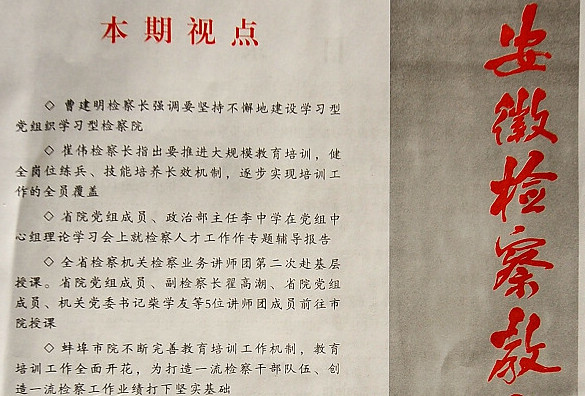 本期视点
◇ 曹建明检察长强调要坚持不懈地建设学习型
党组织学习型检察院
◇ 崔伟检察长指出要推进大规模教育培训，健
全岗位练兵、技能培养长效机制，逐步实现培训工
作的全员覆盖
◇ 省院党组成员、政治部主任李中学在党组中
心组理论学习会上就检察人才工作作专题辅导报告
◇ 全省检察机关检察业务讲师团第二次赴基层
授课。省院党组成员、副检察长翟高潮、省院党组
成员、机关党委书记柴学友等5位讲师团成员前往市
院授课
◇ 蚌埠市院不断完善教育培训工作机制，教育
培训工作全面开花，为打造一流检察干部队伍、创
造一流检察工作业绩打下坚实基础
安徽检察教